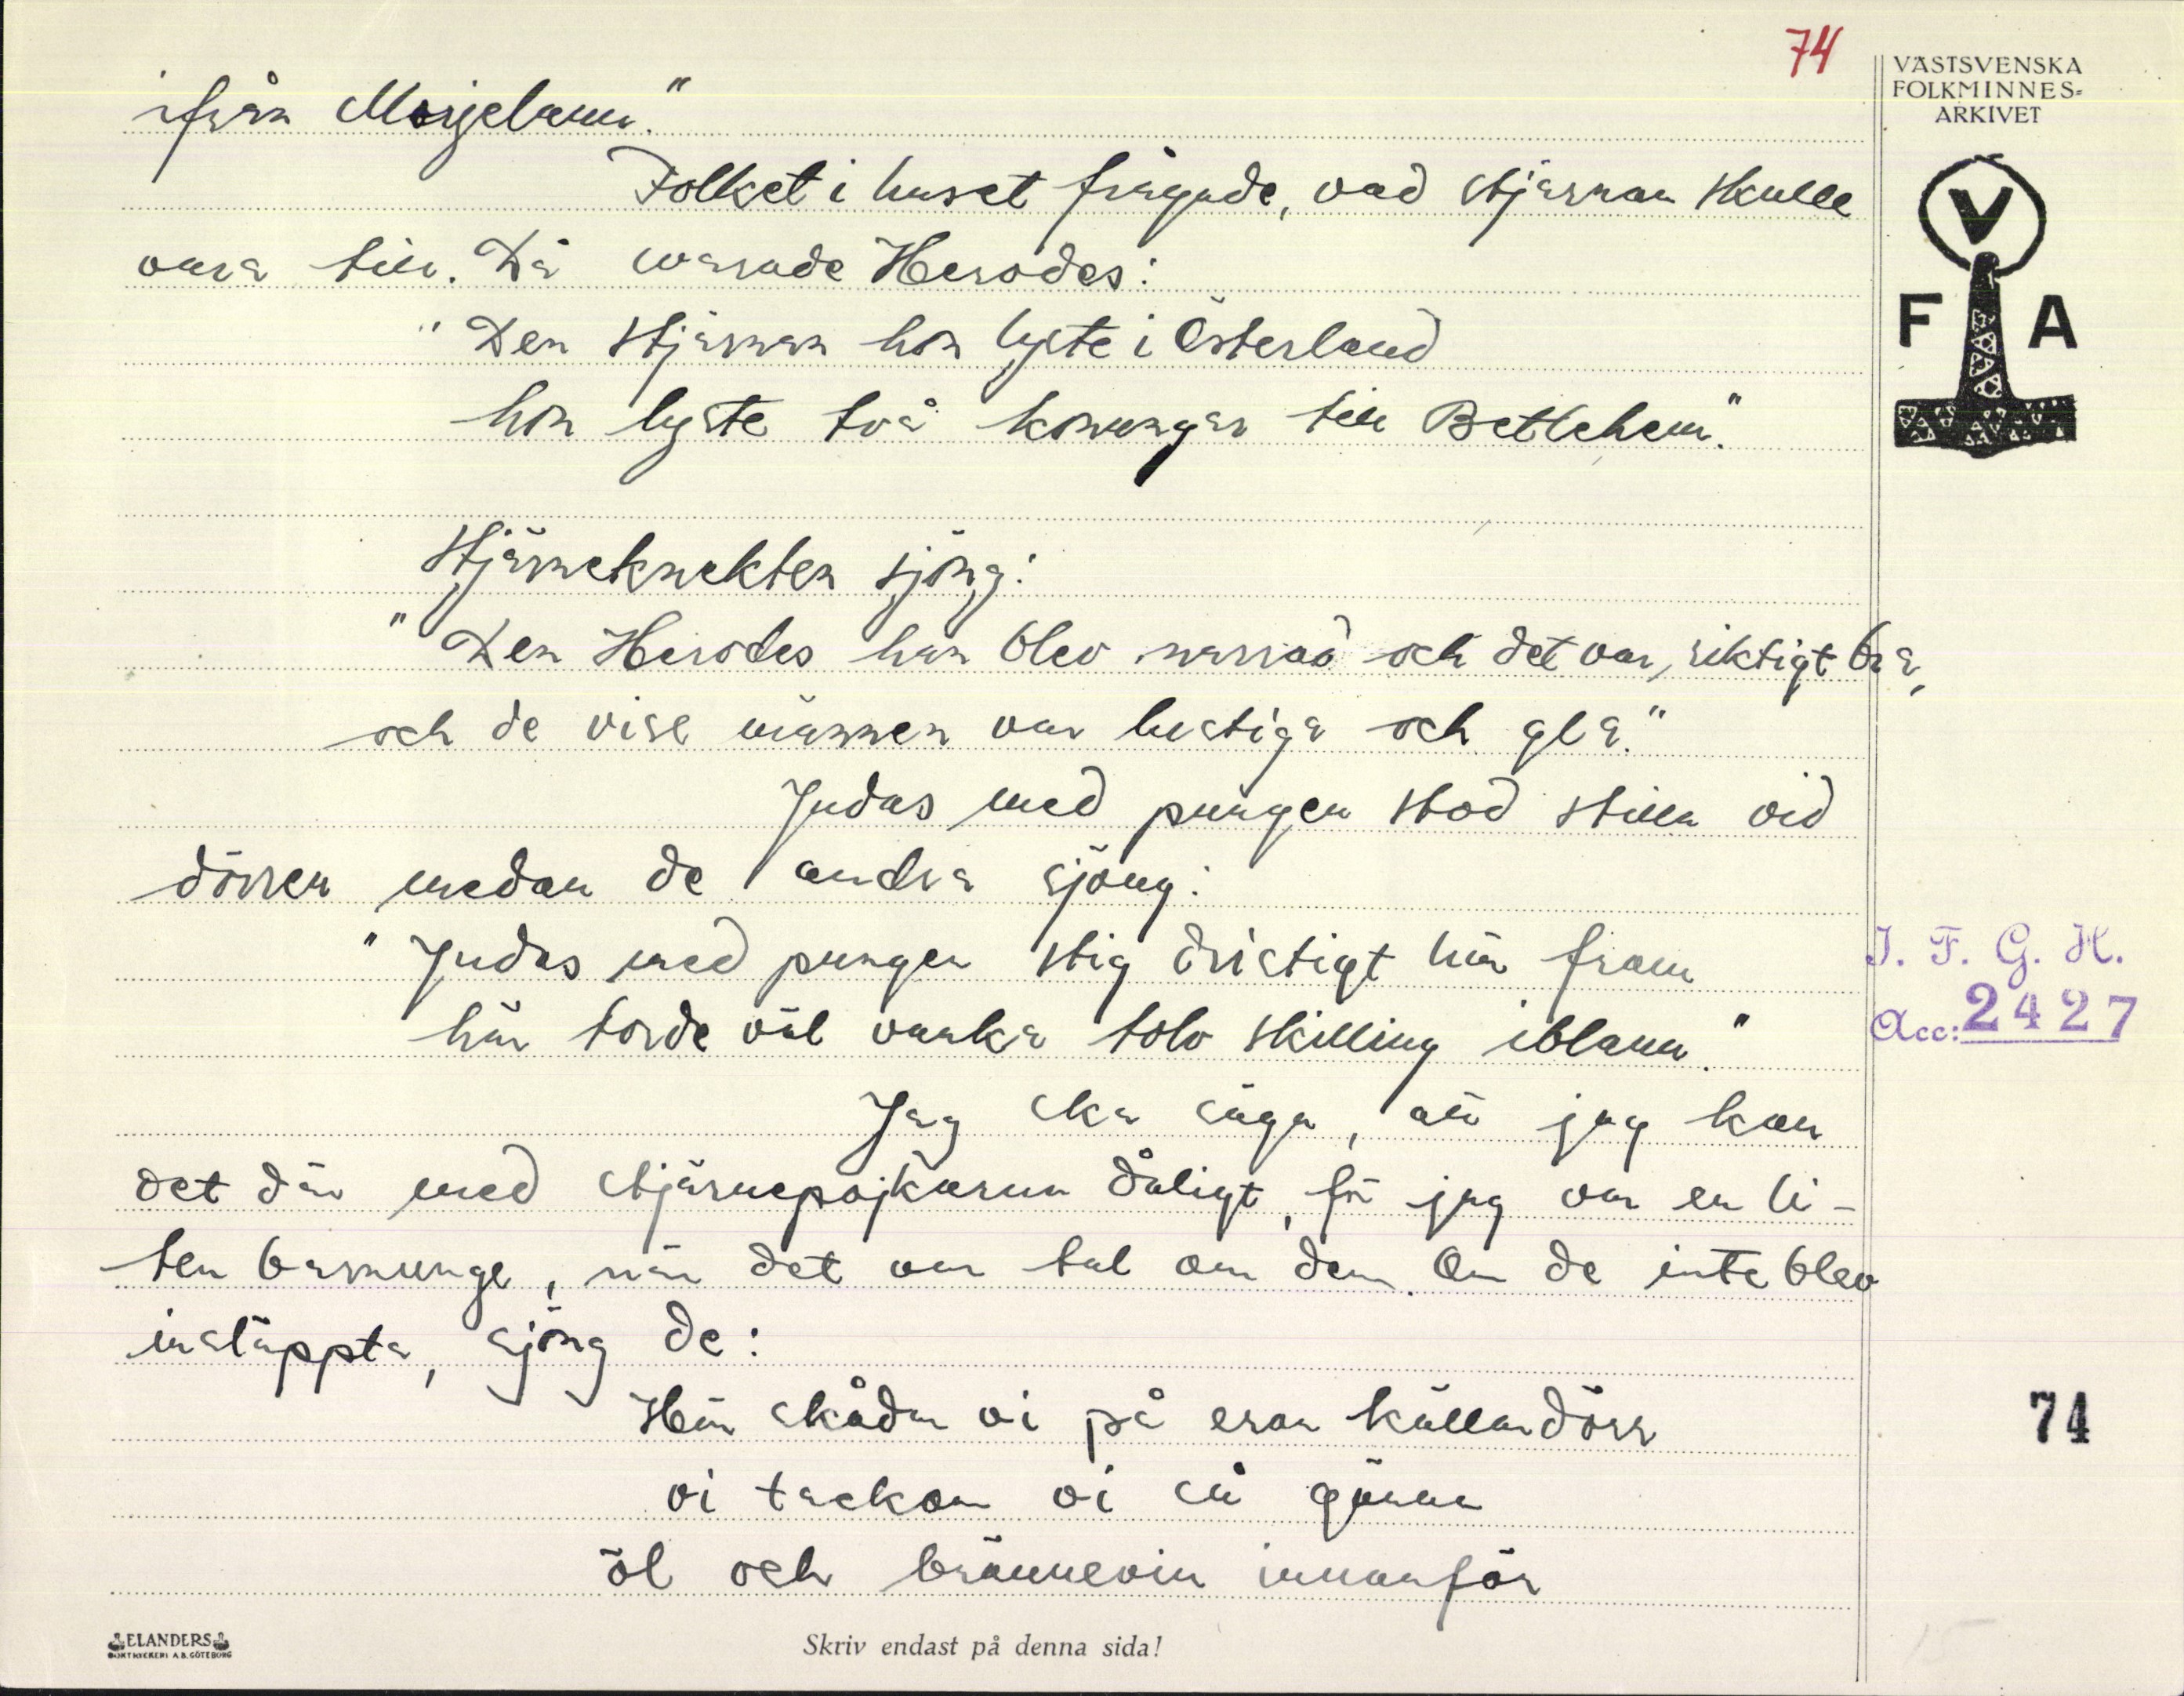 74
VÄSTSVENSKA
FOLKMINNES-
ARKIVET
V
F A
ifrån Morjelann."
Folket i huset frågade, vad stjärnan skulle
vara till. Då svarade Herodes:
"Den stjärnan hon lyste i Österland
hon lyste två konungar till Betlehem."
Stjärneknekten sjöng:
"Den Herodes han blev narrad och det var riktigt bra,
och de vise männen var lustiga och gla."
Judas med pungen stod stilla vid
dörren medan de andra sjöng:
"Judas med pungen stig dristigt här fram
här torde väl vanka tolv skilling iblann."
I. F. G. H.
Acc: 2427
Jag ska säga, att jag kan
det där med stjärnepojkarna dåligt, för jag var en li-
ten barnunge, när det var tal om dem. Om de inte blev
insläppta, sjöng de:
Här skådar vi på eran källardörr
vi tackom vi så gärna
öl och brännevin innanför
74
ELANDERS
BOKTRYCKERI A.B. GÖTEBORG
Skriv endast på denna sida!
15